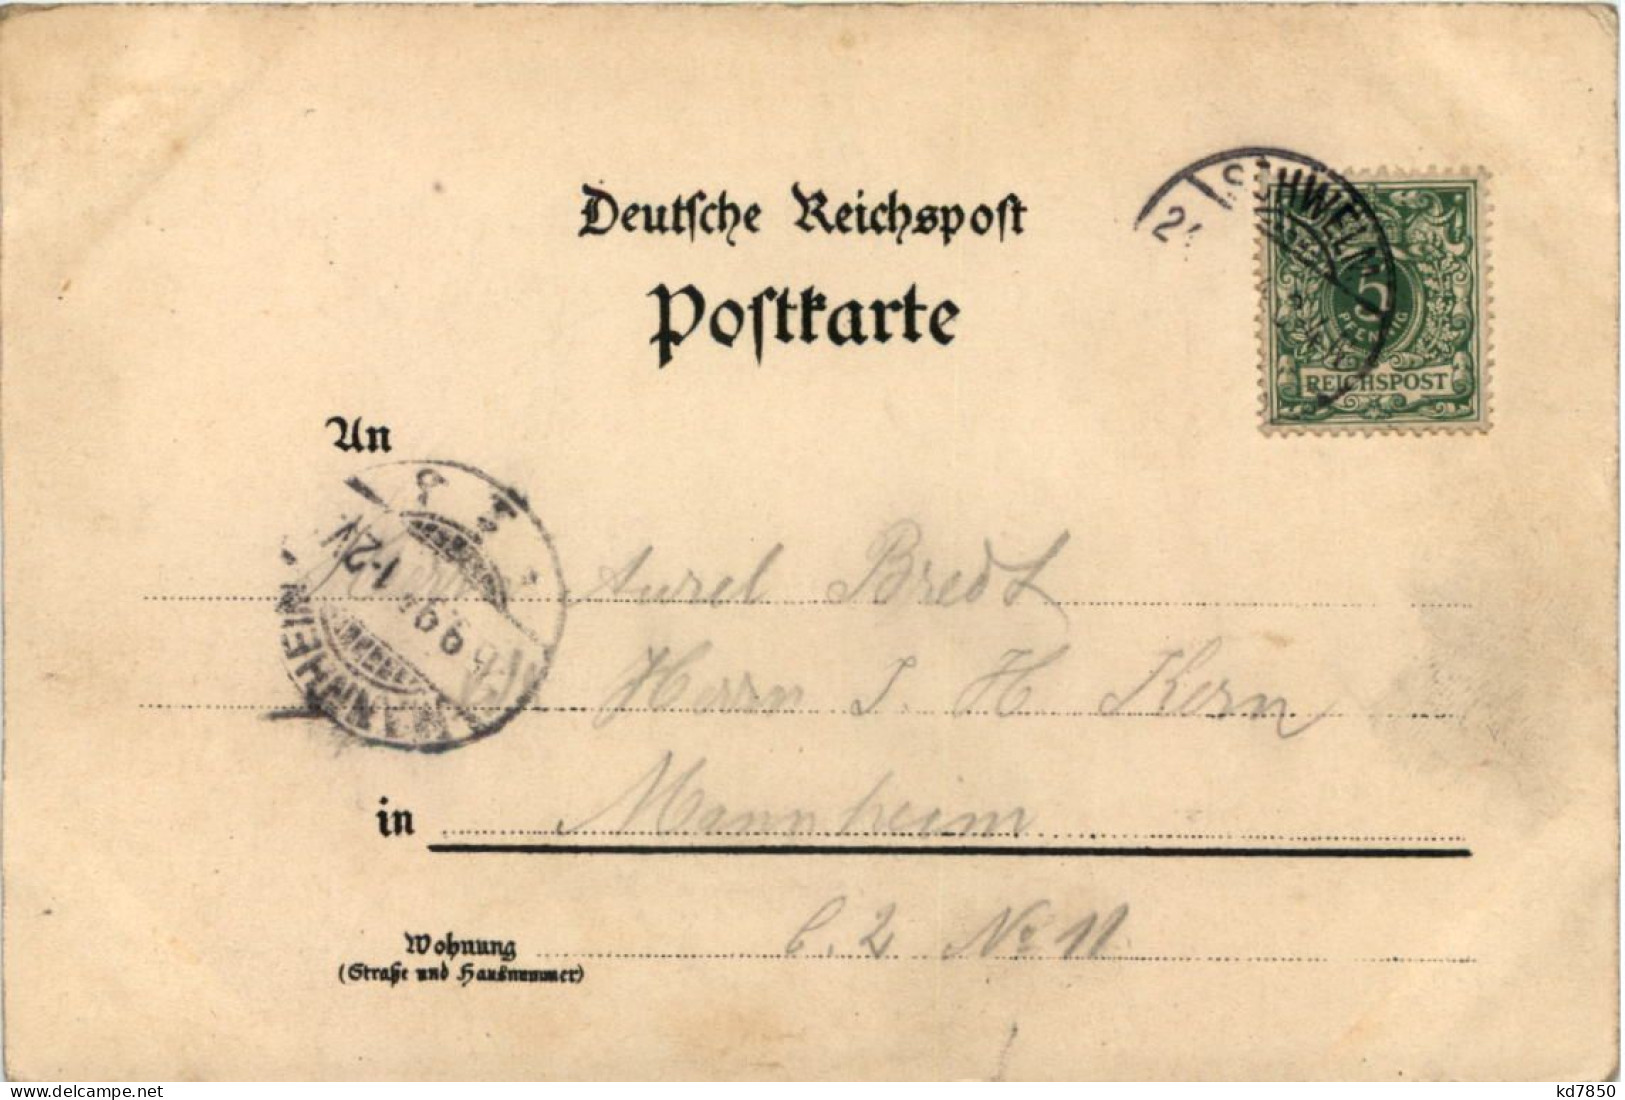 Deutsche Reichspost
Postkarte
SCHWELM
5
PFENNIG
REICHSPOST
An
MANNHEIM
1-2N
99
Aurel Bredt
Herrn J. H Kern
in Mannheim
C. 2 No 11
Wohnung
(Straße und Hausnummer)
www.delcampe.net
kd7850